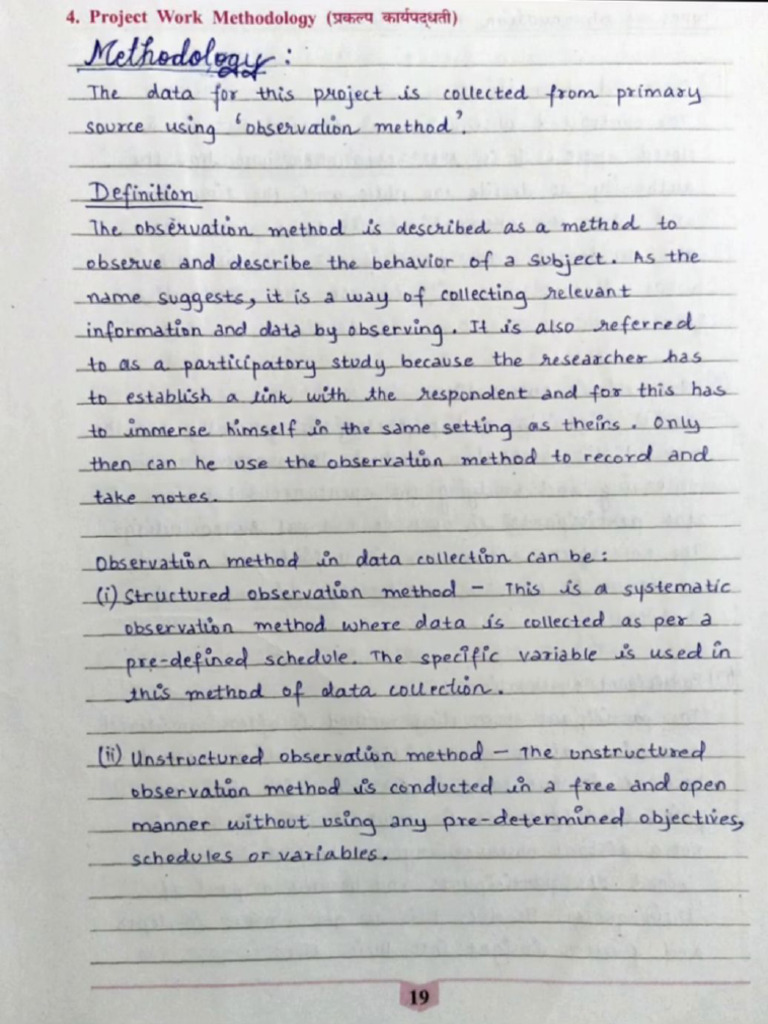 4. Project Work Methodology (प्रकल्प कार्यपद्धती)
Methodology :
The data for this project is collected from primary
source using 'observation method'.
Definition
The observation method is described as a method to
observe and describe the behavior of a subject. As the
name suggests, it is a way of collecting relevant
information and data by observing. It is also referred
to as a participatory study because the researcher has
to establish a link with the respondent and for this has
to immerse himself in the same setting as theirs. Only
then can he use the observation method to record and
take notes.
Observation method in data collection can be :
(i) Structured observation method - This is a systematic
observation method where data is collected as per a
pre-defined schedule. The specific variable is used in
this method of data collection.
(ii) Unstructured observation method - The unstructured
observation method is conducted in a free and open
manner without using any pre-determined objectives,
schedules or variables.
19